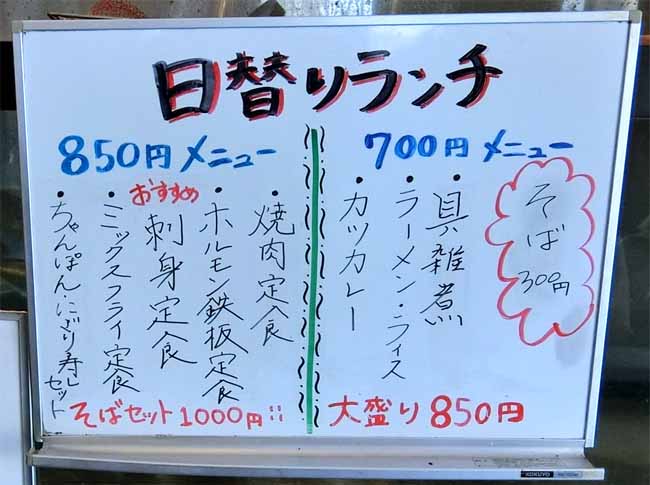 日替りランチ
850円メニュー
・焼肉定食
・ホルモン鉄板定食
おすすめ
・刺身定食
・ミックスフライ定食
・ちゃんぽん・にぎり寿しセット
そばセット1000円
700円メニュー
そば
300円
・具雑煮
・ラーメン・ライス
・カツカレー
大盛り850円
KOKUYO